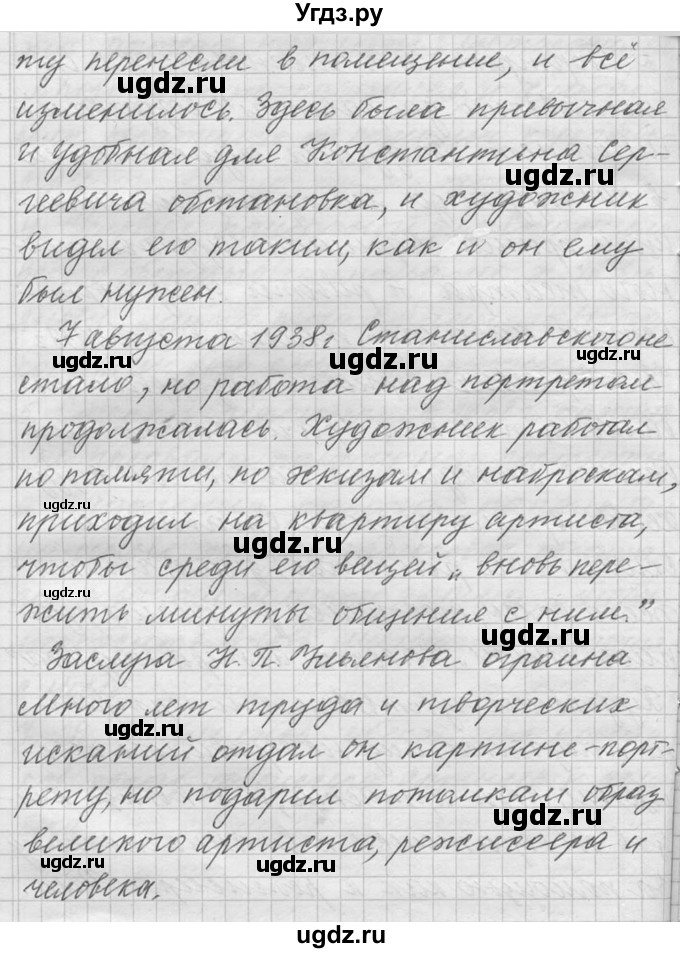 Угдз.ру
ту перенесли в помещение, и всё
ugdz.ru
изменилось. Здесь была привычная
ugdz.ru
и удобная для Константина Сер-
ugdz.ru
геевича обстановка, и художник
видел его таким, как и он ему
был нужен.
7 августа 1938 г Станиславского не
ugdz.ru
ugdz.ru
стало, но работа над портретом
продолжалась. Художник работал
по памяти, по эскизам и наброскам,
ugdz.ru
приходил на квартиру артиста,
ugdz.ru
чтобы среди его вещей „ вновь пере-
жить минуты общения с ним."
ugdz.ru
Заслуга Н. П. Ульянова огромна
Много лет труда и творческих
ugdz.ru
исканий отдал он картине-порт-
рету, но подарил потомкам образ
ugdz.ru
великого артиста, режиссера и
ugdz.ru
ugdz.ru
человека.
ugdz.ru